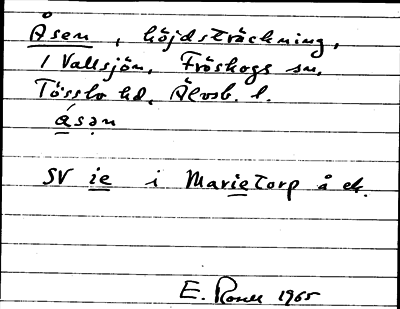 Åsen, höjdsträckning,
i Vallsjön, Fröskogs sn,
Tössbo hd, Älvsb. l.
åsən
SV ie i Marietorp å ek.
E. 1965